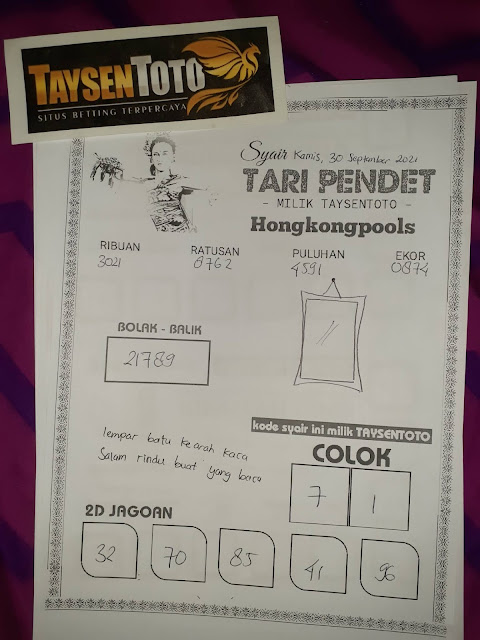 TAYSENTOTO
SITUS BETTING TERPERCAYA
Syair Kamis, 30 September 2021
TARI PENDET
- MILIK TAYSENTOTO -
Hongkongpools
RIBUAN RATUSAN PULUHAN EKOR
3021 8762 4591 0874
BOLAK - BALIK
21789
kode syair ini milik TAYSENTOTO
lempar batu kearah kaca
Salam rindu buat yang baca
COLOK
7 1
2D JAGOAN
32 70 85 41 96